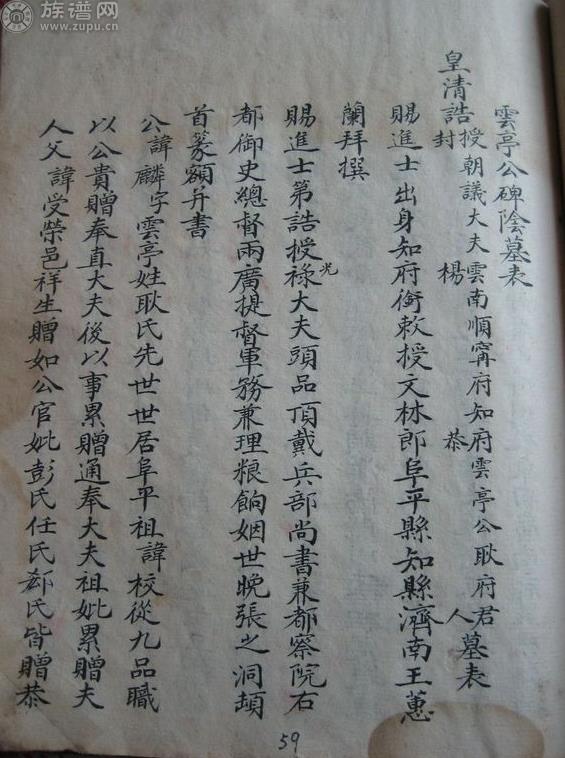 族谱网
www.zupu.cn
雲亭公碑陰墓表
皇清誥授朝議大夫雲南順甯府知府雲亭公耿府君墓表
封楊恭人
賜進士出身知府銜敕授文林郎阜平縣知縣濟南王蕙
蘭拜撰
賜進士第誥授祿大夫頭品頂戴兵部尚書兼都察院右
光
都御史總督兩廣提督軍務兼理粮餉姻世晚張之洞頓
首篆額并書
公諱麟字雲亭姓耿氏先世世居阜平祖諱校從九品職
以公貴贈奉直大夫後以事累贈通奉大夫祖妣累贈夫
人父諱受榮邑祥生贈如公官妣彭氏任氏郝氏皆贈恭
59